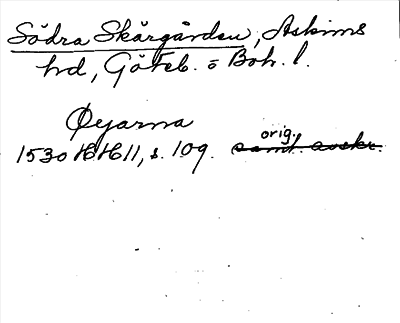 Södra Skärgården, Askims
hd, Göteb. o Boh. l.
Øyarna
orig.
1530 HH 11, s. 109. samt. avskr.